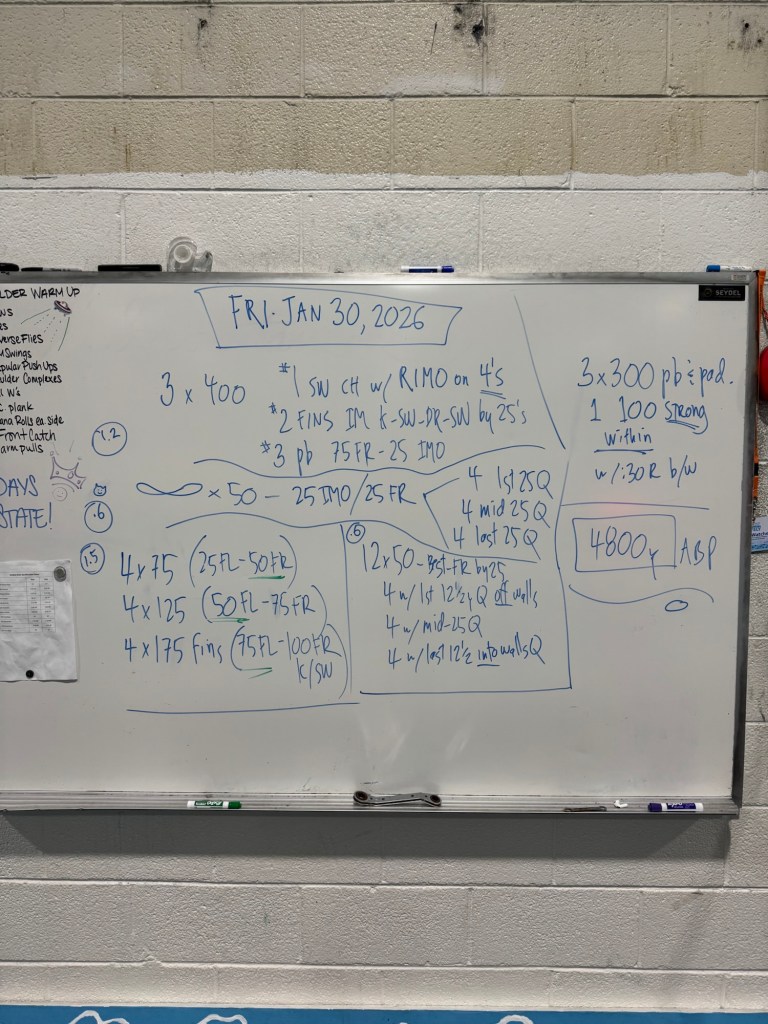 LDER WARM UP
verse Flies
Swings
pular Push Ups
ulder Complexes
W's
plank
ana Rolls ea. side
Front Catch
arm pulls
DAYS
STATE!
FRI. JAN 30, 2026
3 x 400
#1 SW CH w/ RIMO on 4's
#2 FINS IM K-SW-DR-SW by 25's
#3 pb 75FR-25 IMO
1.2
x 50 - 25 IMO/25 FR
4 1st 25 Q
4 mid 25 Q
4 last 25 Q
.6
1.5
4x75 (25FL-50FR)
4x125 (50FL-75FR)
4x175 fins (75FL-100FR)
K/SW
.6
12x50-Best-FR by 25
4 w/ 1st 12½y Q off walls
4 w/ mid-25Q
4 w/ last 12½ into walls Q
3x300 pb & pad.
1 100 strong
within
w/:30 R b/w
4800y ABP
SEYDEL